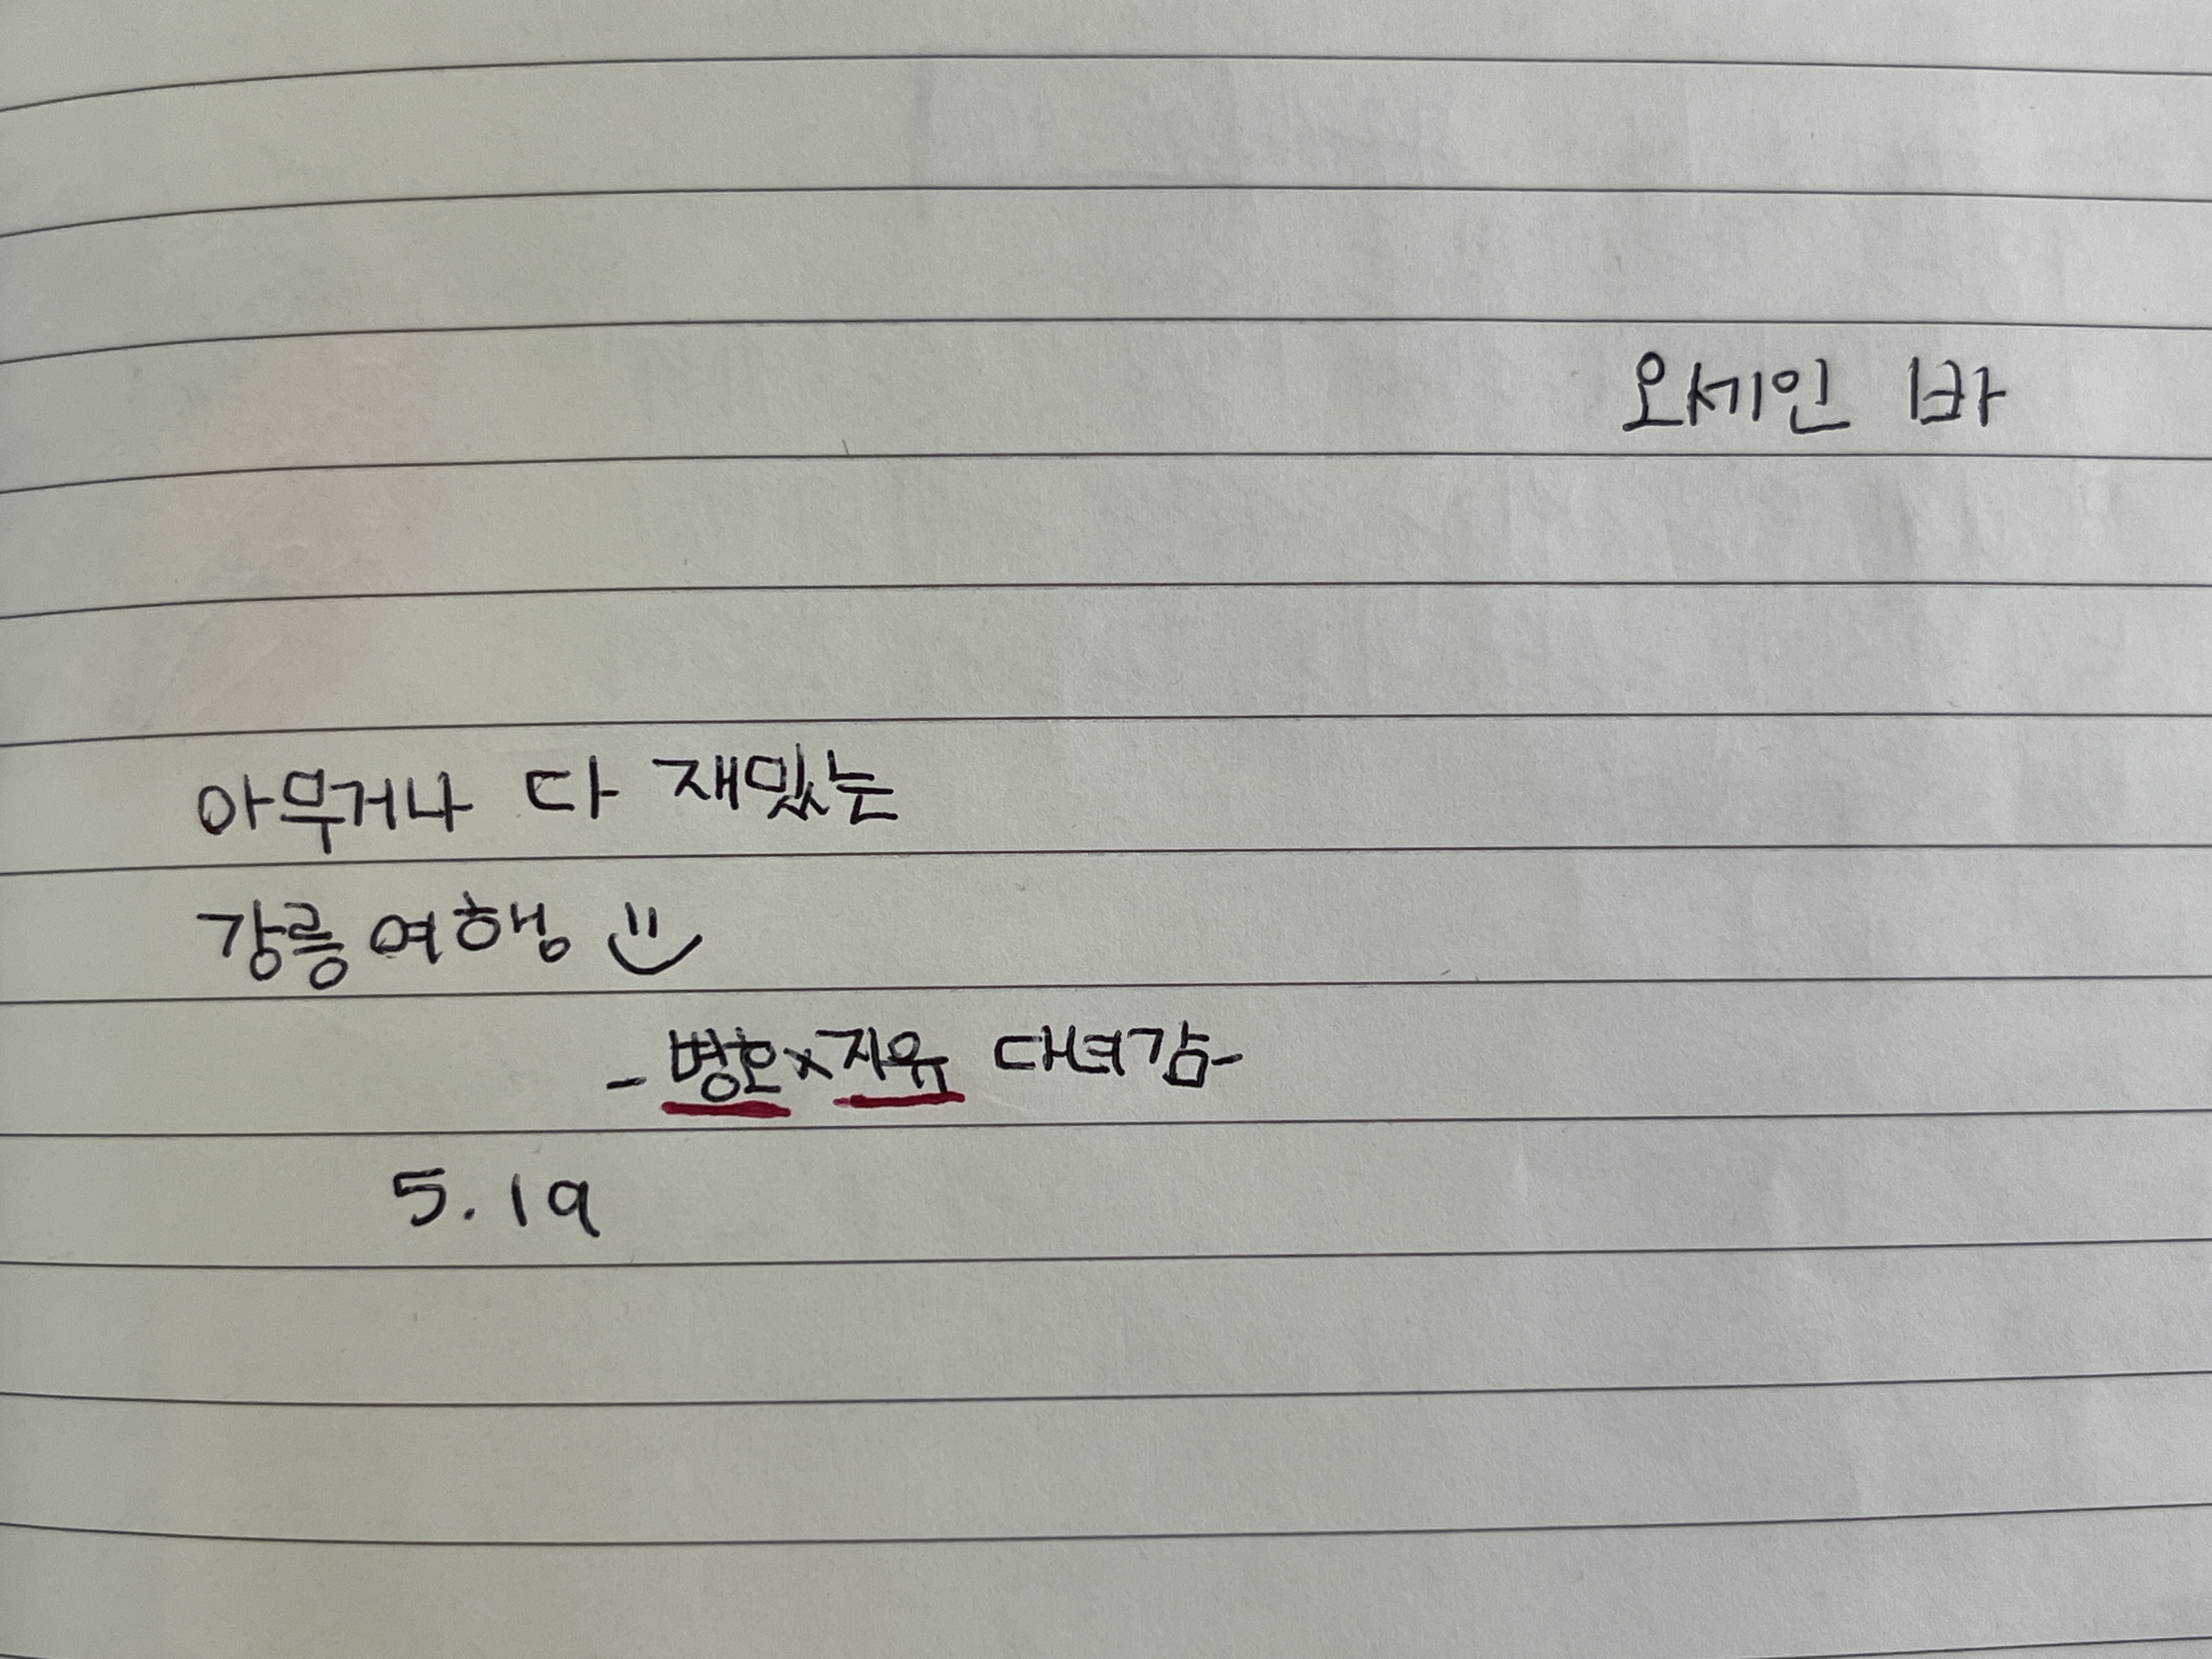 오세인 바
아무거나 다 재밌는
강릉 여행
-병호x지유 대녀감-
5.19